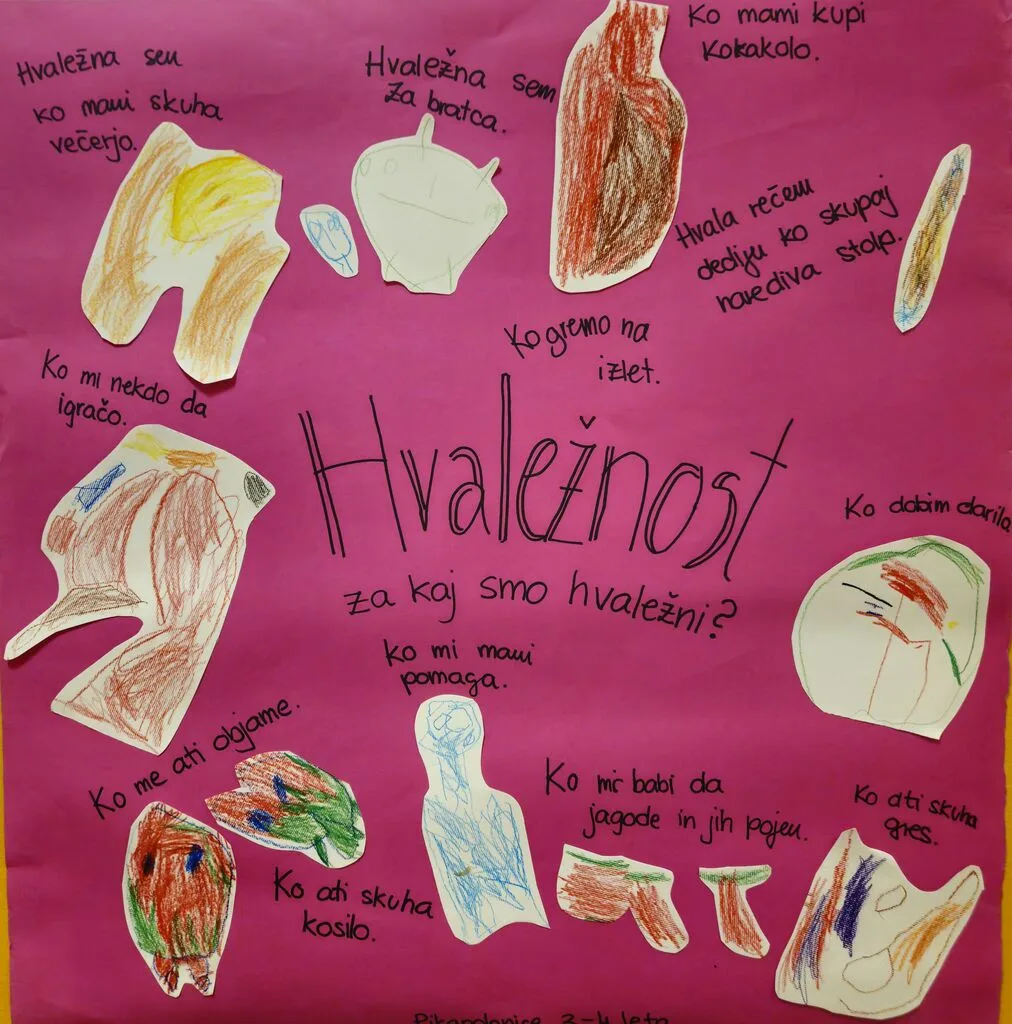 Hvaležna sem
ko mami skuha
večerjo.
Hvaležna sem
za bratca.
Ko mami kupi
kokakolo.
Hvala rečem
dediju ko skupaj
narediva stolp.
Ko gremo na
izlet.
Ko mi nekdo da
igračo.
Hvaležnost
za kaj smo hvaležni?
Ko dobim darila
ko mi mami
pomaga.
Ko me ati objame.
Ko mi babi da
jagode in jih pojem.
Ko ati skuha
gres.
Ko ati skuha
kosilo.
Pikapolonice 3-4 leta